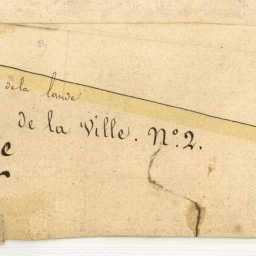 de la lande
de la Ville. N.º 2.
e